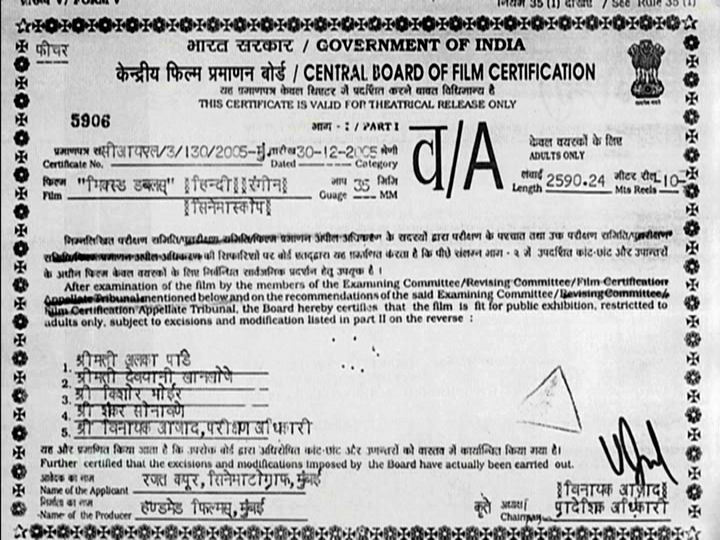 नियम 35 (1) देखिए / See Rule 35 (1)
फीचर
भारत सरकार / GOVERNMENT OF INDIA
केन्द्रीय फिल्म प्रमाणन बोर्ड / CENTRAL BOARD OF FILM CERTIFICATION
यह प्रमाणपत्र केवल थिएटर में प्रदर्शित करने बाबत विधिमान्य है
THIS CERTIFICATE IS VALID FOR THEATRICAL RELEASE ONLY
5906
भाग - I / PART I
व/A
केवल वयस्कों के लिए
ADULTS ONLY
प्रमाणपत्र स सीआयएल/3/130/2005-मुं तारीख 30-12-2005 श्रेणी
Certificate No. Dated Category
फिल्म "मिक्स्ड डबल्स" हिन्दी रंगीन माप 35 मिमि
Film Guage MM
सिनेमास्कोप
लंबाई 2590.24 मीटर रील 10
Length Mts Reels
निम्नलिखित परीक्षण समिति/पुनरीक्षण समिति/फिल्म प्रमाणन अपील अधिकरण के सदस्यों द्वारा परीक्षण के पश्चात तथा उक्त परीक्षण समिति/पुनरीक्षण
समिति/फिल्म प्रमाणन अपील अधिकरण की सिफारिशों पर बोर्ड एतद्द्वारा यह प्रमाणित करता है कि पीछे संलग्न भाग - २ में उपदर्शित कांट-छांट और उपान्तरों
के अधीन फिल्म केवल वयस्कों के लिए निर्बन्धित सार्वजनिक प्रदर्शन हेतु उपयुक्त है ।
After examination of the film by the members of the Examining Committee/Revising Committee/Film Certification
Appellate Tribunal mentioned below and on the recommendations of the said Examining Committee/Revising Committee/
Film Certification Appellate Tribunal, the Board hereby certifies that the film is fit for public exhibition, restrictted to
adults only, subject to excisions and modification listed in part II on the reverse :
1. श्रीमती अलका पांडे
2. श्रीमती देवयानी खानखोजे
3. श्री किशोर भोईर
4. श्री शंकर सोनावणे
5. श्री विनायक आजाद, परीक्षण अधिकारी
यह और प्रमाणित किया जाता है कि उपरोक्त बोर्ड द्वारा अधिरोपित कांट-छांट और उपान्तरों को वास्तव में कार्यान्वित किया गया है।
Further certified that the excisions and modifications imposed by the Board have actually been carried out.
आवेदक का नाम रजत कपूर, सिनेमाटोग्राफ, मुंबई
Name of the Applicant
निर्माता का नाम हॅण्डमेड फिल्मस्, मुंबई
Name of the Producer
विनायक आज़ाद
कृते अध्यक्ष प्रादेशिक अधिकारी
Chairman